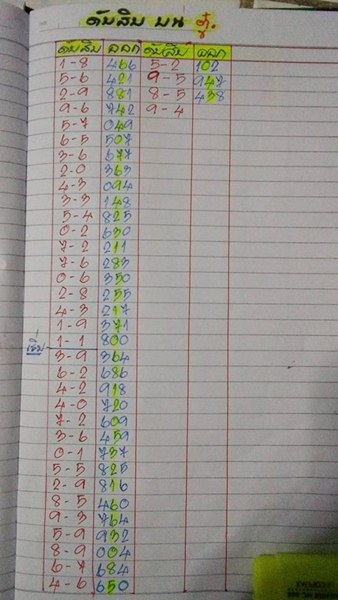 ดับสิบ บน ตู่.
ดับสิบ ออก ดับสิบ ออก
1-8 466 5-2 102
5-6 421 9-5 947
2-9 881 8-5 438
9-6 742 9-4
5-7 049
6-5 507
3-6 677
2-0 363
4-3 094
3-3 148
5-4 825
0-2 630
7-2 211
7-6 283
0-6 350
2-8 255
4-3 217
1-9 371
1-1 800
3-9 364
6-2 686
4-2 918
4-0 720
7-2 609
3-6 459
0-1 737
5-5 825
2-9 816
8-5 460
9-3 764
5-9 932
8-9 004
6-7 684
4-6 650